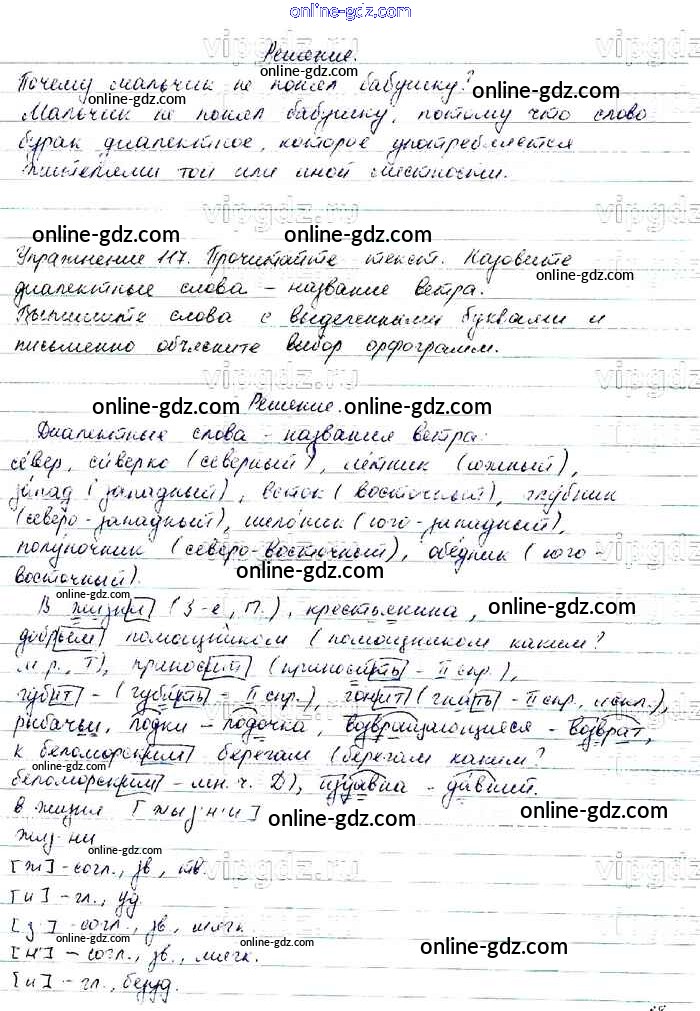 online-gdz.com
Решение.
Почему мальчик не понял бабушку?
online-gdz.com
Мальчик не понял бабушку, потому что слово
бурак диалектное, которое употребляется
жителями той или иной местности.
vipgdz.ru
online-gdz.com online-gdz.com
Упражнение 117. Прочитайте текст. Назовите
online-gdz.com
диалектные слова - название ветра.
Выпишите слова с выделенными буквами и
письменно объясните выбор орфограмм.
vipgdz.ru
online-gdz.com Решение. online-gdz.com
Диалектные слова - названия ветра:
се́вер, си́верко (северный), ле́тник (южный),
за́пад (западный), веток (восточный), глу́бник
(северо-западный), шело́ник (юго-западный),
полу́ночник (северо-восточный), обе́дник (юго-
восточный).
online-gdz.com
В жизни (3-е, П.), крестьянина,
добрым помощником (помощником каким?
м.р., Т), приносит (приносить - II спр.),
губит - (губить - II спр.), гонит (гнать - II спр, искл.),
рыбачьи, лодки - лодочка, возвращающиеся - возврат,
к беломорским берегам (берегам каким?
беломорским - мн. ч. Д), издавна - давний.
в жизни [жыз'н'и]
online-gdz.com online-gdz.com
жиз-ни
online-gdz.com
[ж] - согл., зв, тв.
vipgdz.ru
[и] - гл., уд.
[з'] - согл., зв, мягк.
online-gdz.com online-gdz.com
[н'] - согл., зв., мягк.
online-gdz.com
[и] - гл., безуд.
online-gdz.com